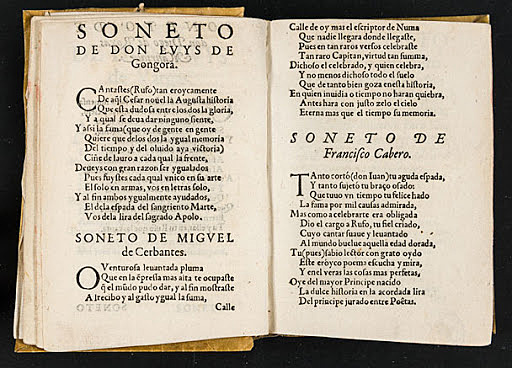 SONETO
DE DON LVYS DE
Gongora.
CAntastes(Rufo)tan eroycamente
De aq̃l Cesar nouel la Augusta historia
Que està dudosa entre los dos la gloria,
Y a qual se deua dar ninguno siente,
Y assi la fama(que oy de gente en gente
Quiere que delos dos la ygual memoria
Del tiempo y del oluido aya victoria)
Ciñe de lauro a cada qual la frente,
Deueys con gran razon ser ygualados
Pues fuystes cada qual vnico en su arte
El solo en armas, vos en letras solo,
Y al fin ambos ygualmente ayudados,
El dela espada del sangriento Marte,
Vos dela lira del sagrado Apolo.
SONETO DE MIGVEL
de Cerbantes.
O Venturosa leuantada pluma
Que en la ẽpressa mas alta te ocupaste
q̃l mũdo pudo dar, y al fin mostraste
Al recibo y al gasto ygual la suma,
Calle
Calle de oy mas el escriptor de Numa
Que nadie llegara donde llegaste,
Pues en tan raros versos celebraste
Tan raro Capitan, virtud tan summa,
Dichoso el celebrado, y quien celebra,
Y no menos dichoso todo el suelo
Que de tanto bien goza enesta historia,
En quien inuidia o tiempo no haran quiebra,
Antes hara con justo zelo el cielo
Eterna mas que el tiempo su memoria.
SONETO DE
Francisco Cabero.
TAnto cortó(don Iuan)tu aguda espada,
Y tanto sujetò tu braço osado:
Que tuuo vn tiempo tu felice hado
La fama por mil causas admirada,
Mas como a celebrarte era obligada
Dio el cargo a Rufo, tu fiel criado,
Cuyo cantar suaue y leuantado
Al mundo buelue aquella edad dorada,
Tu(pues)sabio lector con grato oydo
Este eroyco poema escucha y mira,
Y enel veras las cosas mas perfetas,
Oye del mayor Principe nacido
La dulce historia en la acordada lira
Del principe jurado entre Poëtas.